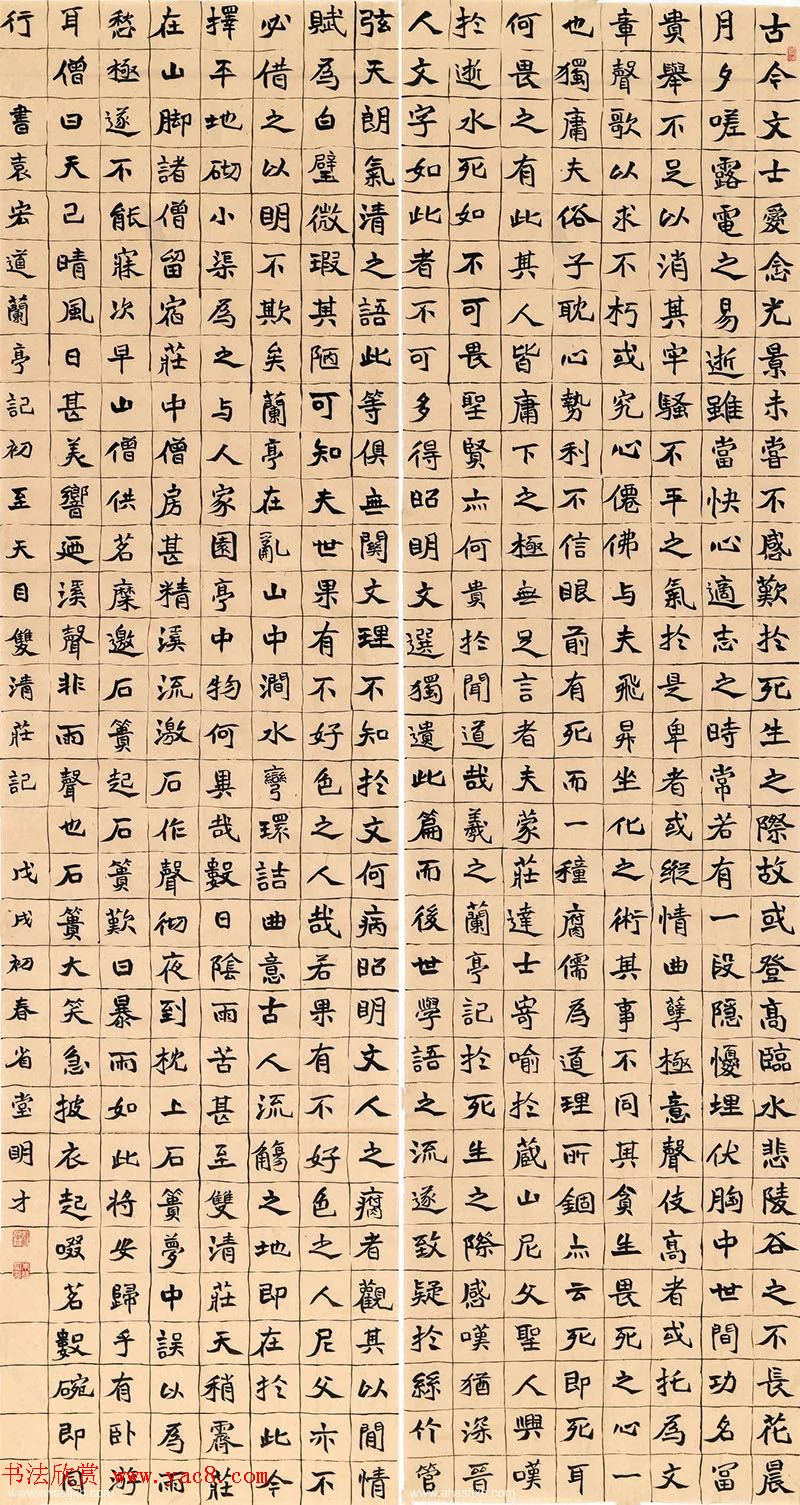 古今文士愛念光景未嘗不感歎於死生之際故或登高臨水悲陵谷之不長花晨
月夕嗟露電之易逝雖當快心適志之時常若有一段隱懮埋伏胸中世間功名富
貴舉不足以消其牢騷不平之氣於是卑者或縱情曲孽極意聲伎高者或托為文
章聲歌以求不朽或究心僊佛与夫飛昇坐化之術其事不同其貪生畏死之心一
也獨庸夫俗子耽心勢利不信眼前有死而一種腐儒為道理所錮亦云死即死耳
何畏之有此其人皆庸下之極無足言者夫蒙莊達士寄喻於藏山尼父聖人興嘆
於逝水死如不可畏聖賢亦何貴於聞道哉羲之蘭亭記於死生之際感嘆猶深晉
人文字如此者不可多得昭明文選獨遺此篇而後世學語之流遂致疑於絲竹管
弦天朗氣清之語此等俱無関文理不知於文何病昭明文人之腐者觀其以閒情
賦為白璧微瑕其陋可知夫世果有不好色之人哉若果有不好色之人尼父亦不
必借之以明不欺矣蘭亭在亂山中澗水彎環詰曲意古人流觴之地即在於此今
擇平地砌小渠為之与人家園亭中物何異哉數日陰雨苦甚至雙清莊天稍霽莊
在山脚諸僧留宿莊中僧房甚精溪流激石作聲彻夜到枕上石簣夢中誤以為雨
愁極遂不能寐次早山僧供茗糜邀石簣起石簣歎曰暴雨如此將安歸乎有卧游
耳僧曰天已晴風日甚美響廼溪聲非雨聲也石簣大笑急披衣起啜茗數碗即同
行 書袁宏道蘭亭記初至天目雙清莊記 戊戌初春省堂明才
书法欣赏 www.yac8.com